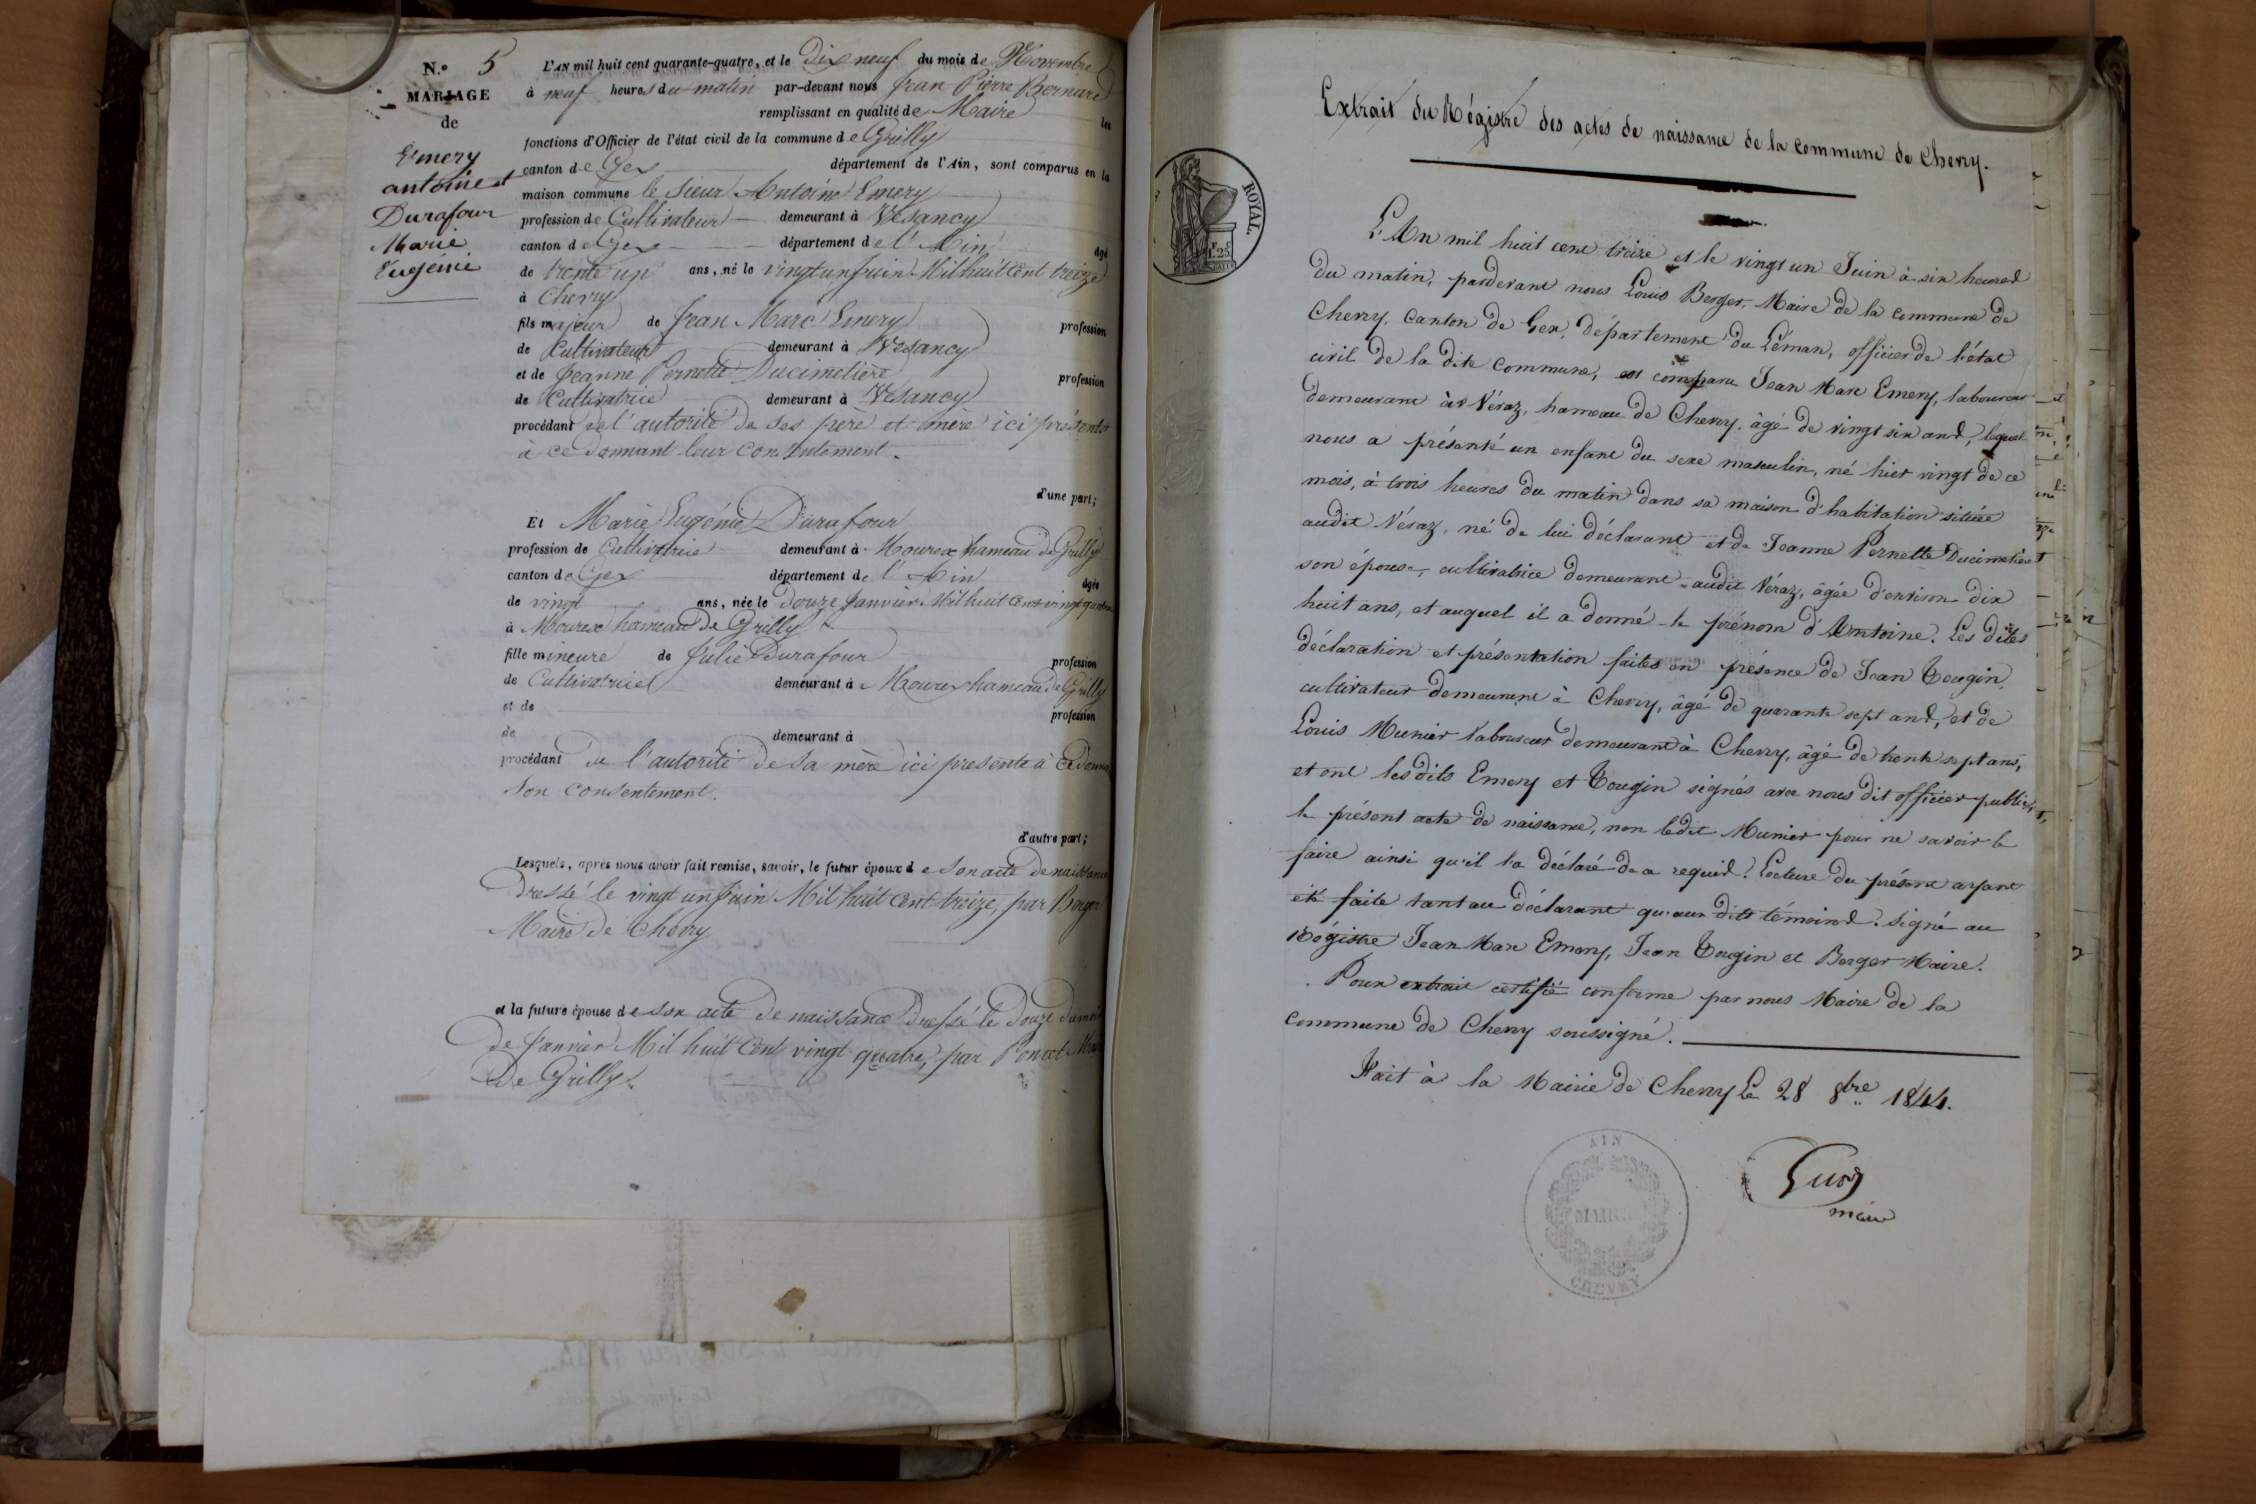 N.º 5
MARIAGE
de
Emery
antoine et
Durafour
Marie
Eugénie
L'AN mil huit cent quarante-quatre, et le Dix neuf du mois de Novembre
à neuf heures du matin par-devant nous Jean Pierre Bernard
remplissant en qualité de Maire les
fonctions d'Officier de l'état civil de la commune de Grilly
canton de Gex département de l'Ain, sont comparus en la
maison commune le Sieur Antoine Emery
profession de Cultivateur demeurant à Vesancy
canton de Gex département de l'Ain âgé
de trente un ans, né le vingt un juin Mil huit Cent treize
à Chevry
fils majeur de Jean Marc Emery profession
de Cultivateur demeurant à Vesancy
et de Jeanne Pernette Ducimetière profession
de Cultivatrice demeurant à Vesancy
procédant de l'autorité de ses père et mère ici présents
à ce donnant leur consentement.
d'une part;
Et Marie Eugénie Durafour
profession de Cultivatrice demeurant à Mourex hameau de Grilly
canton de Gex département de l'Ain âgée
de vingt ans, née le Douze Janvier Mil huit Cent vingt quatre
à Mourex hameau de Grilly
fille mineure de Julie Durafour profession
de Cultivatrice demeurant à Mourex hameau de Grilly
et de profession
de demeurant à
procédant de l'autorité de Sa mère ici presente à ce donnant
Son consentement.
d'autre part;
Lesquels, après nous avoir fait remise, savoir, le futur époux de Son acte de naissance
Dressé le vingt un Juin Mil huit Cent treize, par Berger
Maire de Chevry
et la future épouse de son acte de naissance Dressé le Douze du mois
de Janvier Mil huit Cent vingt quatre, par Poncet Maire
De Grilly.
ROYAL.
Extrait du Régistre des actes de naissance de la commune de Chevry.
L'An mil huit cent treize et le vingt un Juin à six heures
du matin, pardevant nous Louis Berger Maire de la commune de
Chevry, Canton de Gex, Département du Léman, officier de l'état
civil de la dite commune, est comparu Jean Marc Emery, laboureur
demeurant à Véraz, hameau de Chevry, âgé de vingt six ans, lequel
nous a présenté un enfant du sexe masculin, né hier vingt de ce
mois, à trois heures du matin dans sa maison d'habitation située
audit Véraz, né de lui déclarant et de Jeanne Pernette Ducimetière
son épouse, cultivatrice demeurant audit Véraz, âgée d'environ dix
huit ans, et auquel il a donné le prénom d'Antoine. Les dites
déclaration et présentation faites en présence de Jean Tougin,
cultivateur demeurant à Chevry, âgé de quarante sept ans, et de
Louis Munier laboureur demeurant à Chevry, âgé de trente sept ans,
et ont les dits Emery et Tougin signés avec nous dit officier public,
le présent acte de naissance, non ledit Munier pour ne savoir le
faire ainsi qu'il l'a déclaré de ce requis. Lecture du présent ayant
été faite tant au déclarant qu'aux dits témoins. Signé au
Régistre Jean Marc Emery, Jean Tougin et Berger Maire.
Pour extrait certifié conforme par nous Maire de la
commune de Chevry soussigné.
Fait à la Mairie de Chevry Le 28 8bre 1844.
AIN
MAIRIE
CHEVRY
maire